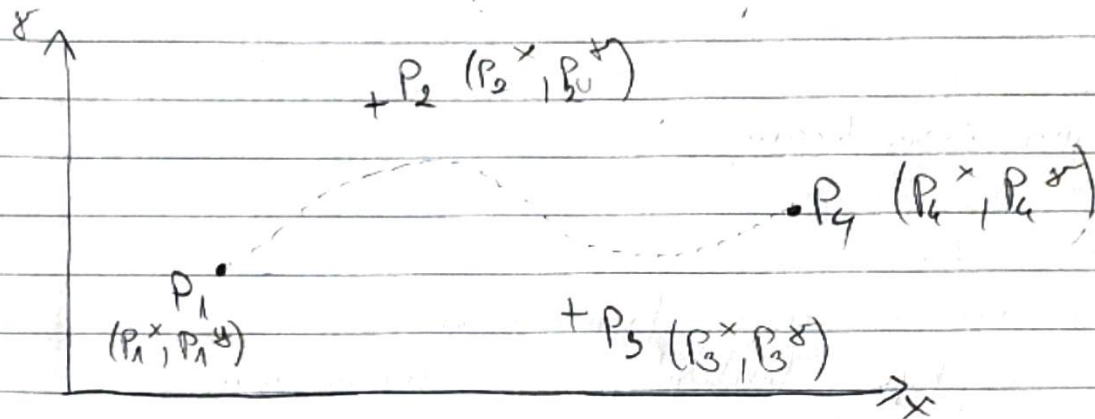 y
P₂ (P₂ˣ, P₂ʸ)
P₄ (P₄ˣ, P₄ʸ)
P₁
(P₁ˣ, P₁ʸ)
P₃ (P₃ˣ, P₃ʸ)
x